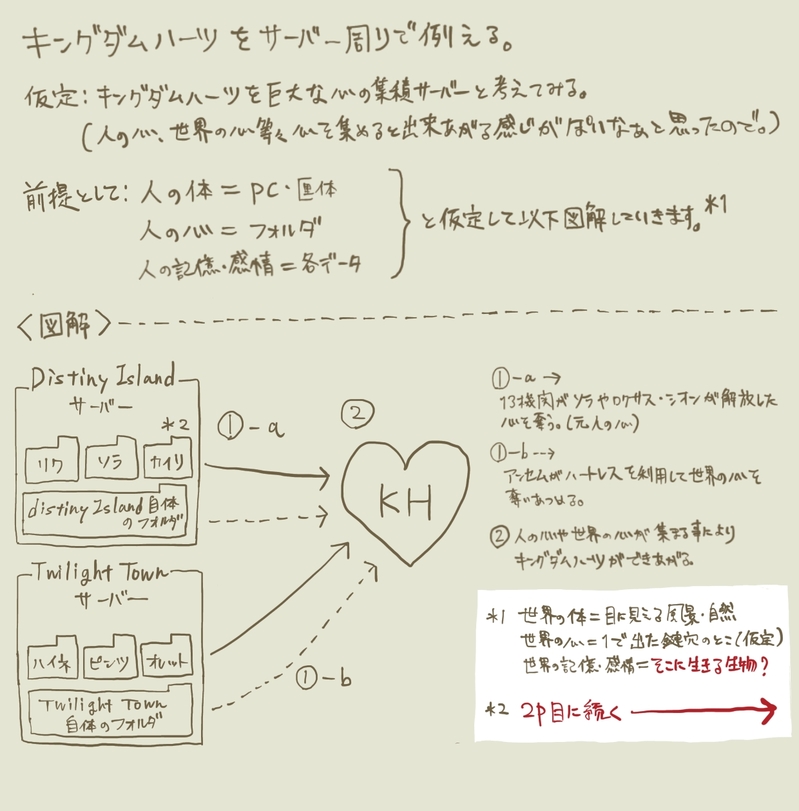 キングダムハーツをサーバー周りで例える。
仮定：キングダムハーツを巨大な心の集積サーバーと考えてみる。
（人の心、世界の心等々心を集めると出来あがる感じがぽいなぁと思ったので。）
前提として：人の体＝PC・匡体
人の心＝フォルダ
人の記憶・感情＝各データ
と仮定して以下図解していきます。*1
〈図解〉
Distiny Island
サーバー
*2
リク
ソラ
カイリ
distiny Island自体
のフォルダ
Twilight Town
サーバー
ハイネ
ピンツ
オレット
Twilight Town
自体のフォルダ
①-a
②
KH
①-b
①-a →
13機関がソラやロクサス・シオンが解放した
心を奪う。（元人の心）
①-b -->
アンセムがハートレスを利用して世界の心を
奪いあつめる。
②人の心や世界の心が集まる事により
キングダムハーツができあがる。
*1 世界の体＝目に見える風景・自然
世界の心＝1で出た鍵穴のとこ（仮定）
世界の記憶・感情＝そこに生きる生物？
*2 2P目に続く